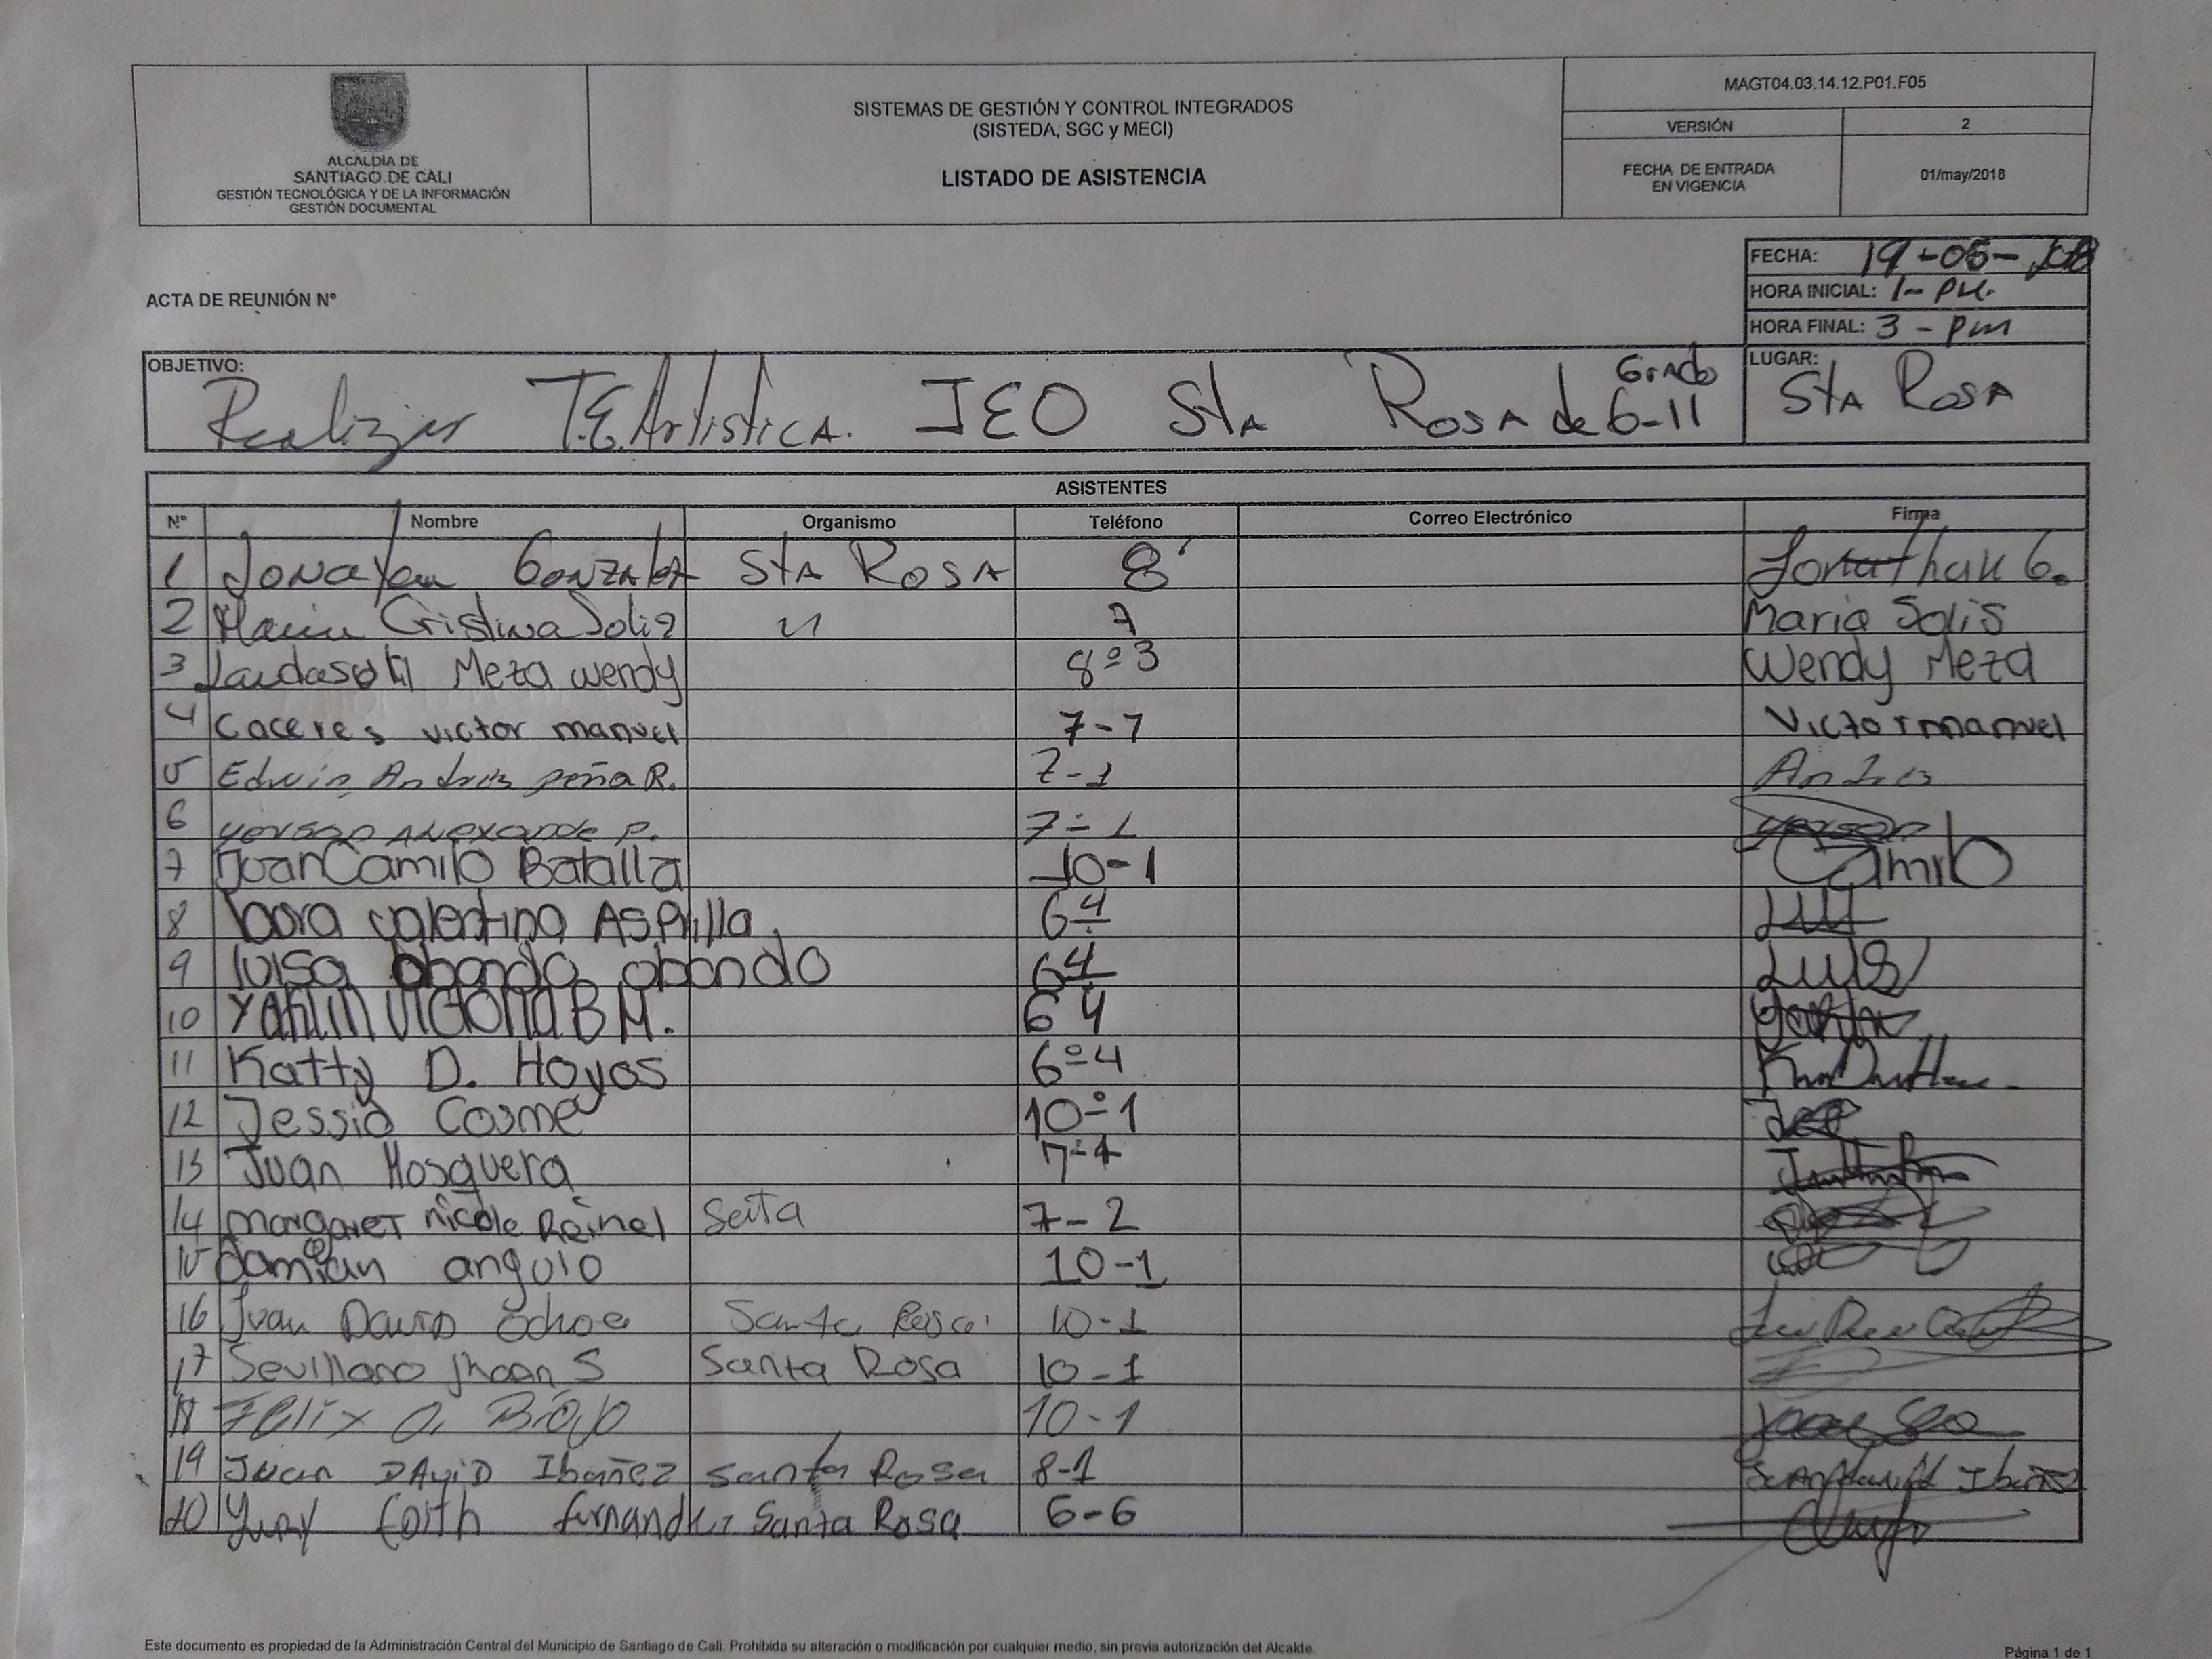 ALCALDÍA DE
SANTIAGO DE CALI
GESTIÓN TECNOLÓGICA Y DE LA INFORMACIÓN
GESTIÓN DOCUMENTAL
SISTEMAS DE GESTIÓN Y CONTROL INTEGRADOS
(SISTEDA, SGC y MECI)
LISTADO DE ASISTENCIA
MAGT04.03.14.12.P01.F05
VERSIÓN 2
FECHA DE ENTRADA
EN VIGENCIA
01/may/2018
ACTA DE REUNIÓN N°
FECHA: 19-05-
HORA INICIAL: 1- PM.
HORA FINAL: 3 - pm
OBJETIVO: Realizar T.E.Artistica. IEO Sta Rosa de Grado 6-11
LUGAR: Sta Rosa
ASISTENTES
N° Nombre Organismo Teléfono Correo Electrónico Firma
1 Jonathan Gonzalez Sta Rosa 8° Jonathan G.
2 Maria Cristina Solis 7 Maria Solis
3 Meza wendy 8º3 Wendy Meza
4 Caceres victor manuel 7-7 Victor manuel
5 Edwin Andres peña R. 7-1 Andres
6 yerson Alexande P. 7-1 yerson
7 Juan Camilo Batalla 10-1 Camilo
8 valentina Asprilla 6 4
9 luisa obando obando 6 4 Luis
10 B M. 6 4
11 Katty D. Hoyos 6º4
12 Jessid Cosme 10-1
13 Juan Mosquera 7-1
14 margaret nicole Reinel 7-2
15 Damian angulo 10-1
16 Juan David Ochoa Santa Rosa 10-1
17 Sevillano Jhoan S Santa Rosa 10-1
18 Felix A. 10-1
19 Juan DAviD Ibañez Santa Rosa 8-1 Juan david Ibañez
20 Yury Edith fernandez Santa Rosa 6-6
Este documento es propiedad de la Administración Central del Municipio de Santiago de Cali. Prohibida su alteración o modificación por cualquier medio, sin previa autorización del Alcalde.
Página 1 de 1